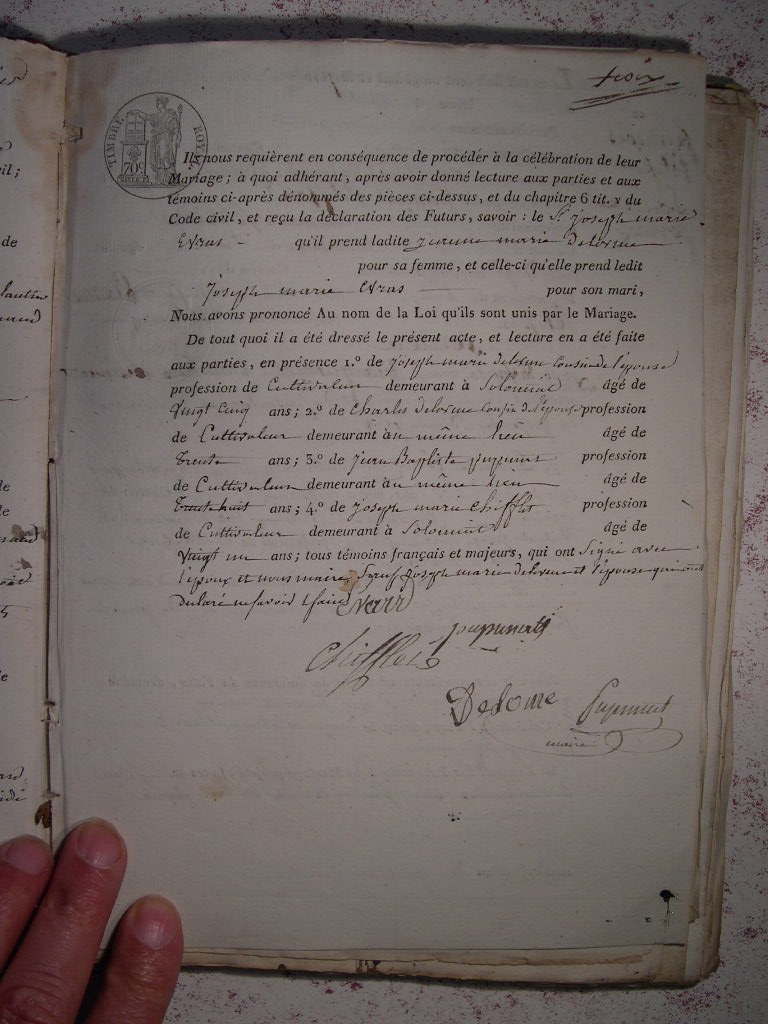 trois
TIMBRE ROYAL
70c
Ils nous requièrent en conséquence de procéder à la célébration de leur
Mariage ; à quoi adhérant, après avoir donné lecture aux parties et aux
témoins ci-après dénommés des pièces ci-dessus, et du chapitre 6 tit. v du
Code civil, et reçu la déclaration des Futurs, savoir : le Sr joseph marie
Evras qu'il prend ladite jeanne marie Delorme
pour sa femme, et celle-ci qu'elle prend ledit
joseph marie Evras pour son mari,
Nous avons prononcé Au nom de la Loi qu'ils sont unis par le Mariage.
De tout quoi il a été dressé le présent acte, et lecture en a été faite
aux parties, en présence 1.º de joseph marie delorme cousin de l'épouse
profession de Cultivateur demeurant à Solomiat âgé de
Vingt cinq ans ; 2.º de Charles delorme cousin de l'épouse profession
de Cultivateur demeurant à u même lieu âgé de
Trente ans ; 3.º de jean Baptiste profession
de Cultivateur demeurant à u même lieu âgé de
Trente huit ans ; 4.º de joseph marie Chifflet profession
de Cultivateur demeurant à Solomiat âgé de
Vingt un ans ; tous témoins français et majeurs, qui ont Signé avec
l'époux et nous maire, joseph marie delorme et l'épouse qui ont
Declaré ne savoir le faire
Chifflet
Delorme
maire
il ;
de
de
de